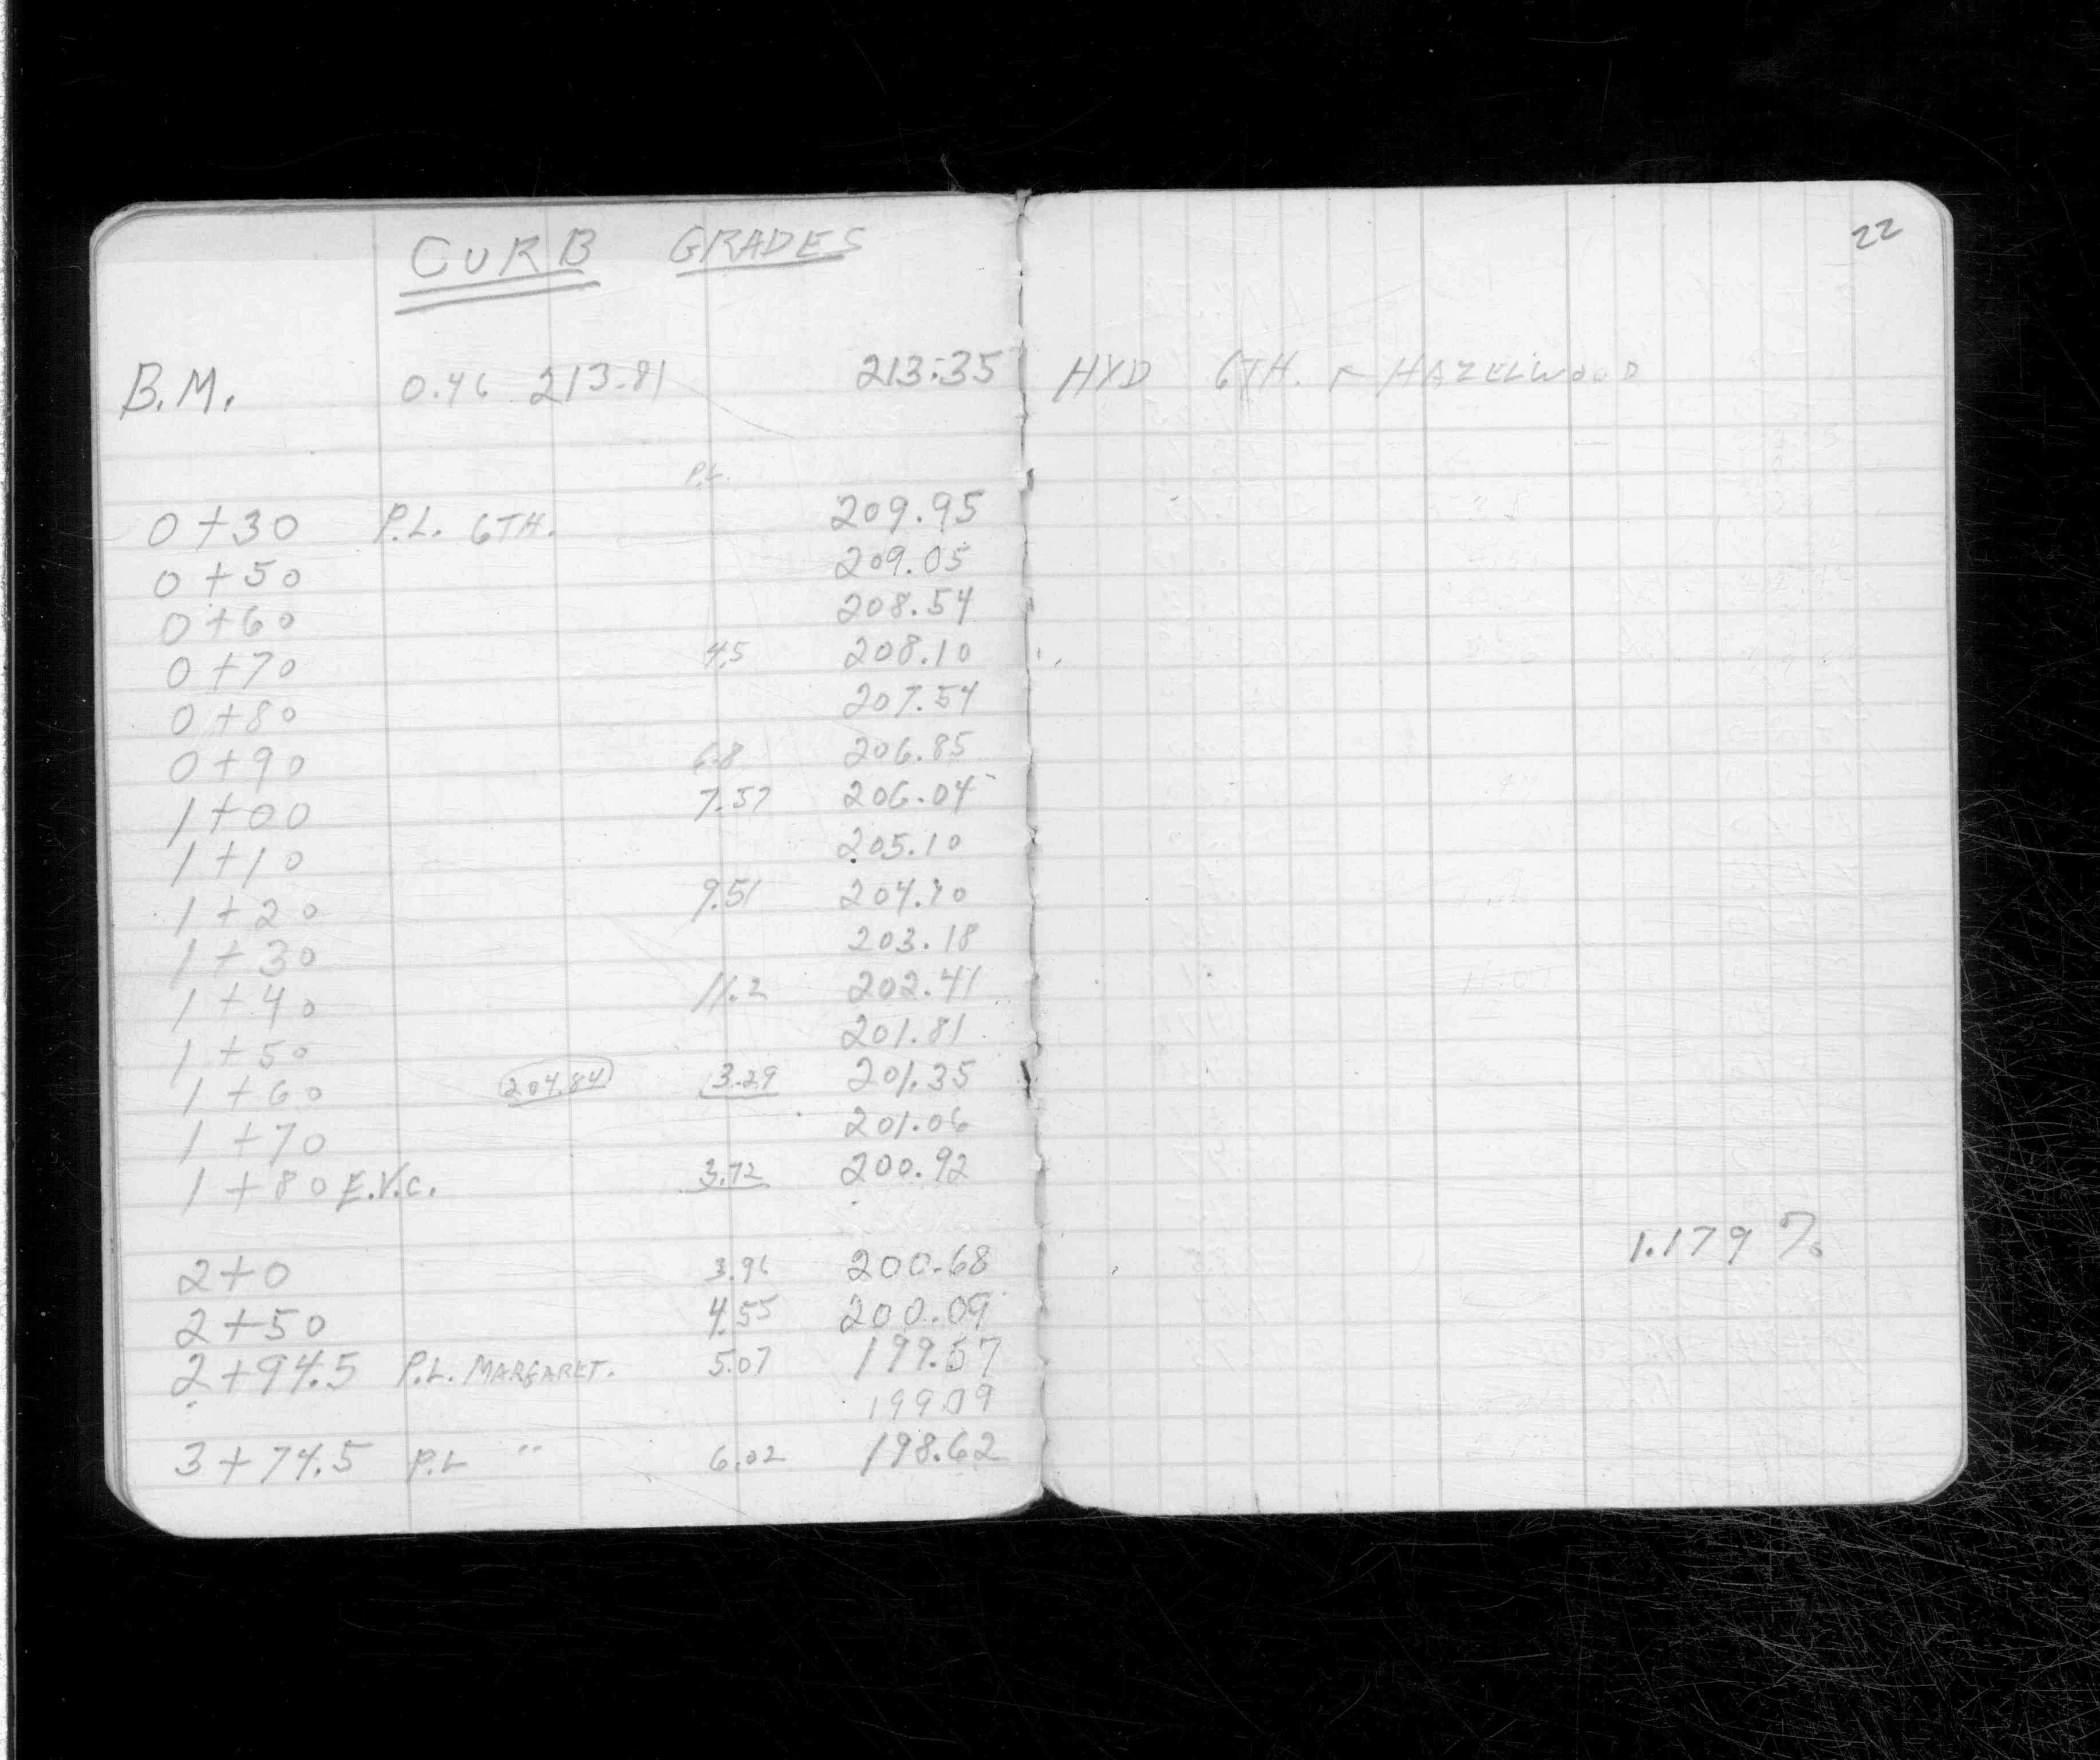 CURB GRADES
22
B.M. 0.46 213.81 213.35 HYD 6TH. HAZELWOOD
P.L.
0+30 P.L. 6TH. 209.95
0+50 209.05
0+60 208.54
0+70 4.5 208.10
0+80 207.54
0+90 6.8 206.85
1+00 7.57 206.04
1+10 205.10
1+20 9.51 204.10
1+30 203.18
1+40 11.2 202.41
1+50 201.81
1+60 204.84 3.29 201.35
1+70 201.06
1+80 E.V.C. 3.72 200.92
1.179 %
2+0 3.96 200.68
2+50 4.55 200.09
2+94.5 P.L. MARGARET. 5.07 199.57
199.09
3+74.5 P.L " 6.02 198.62